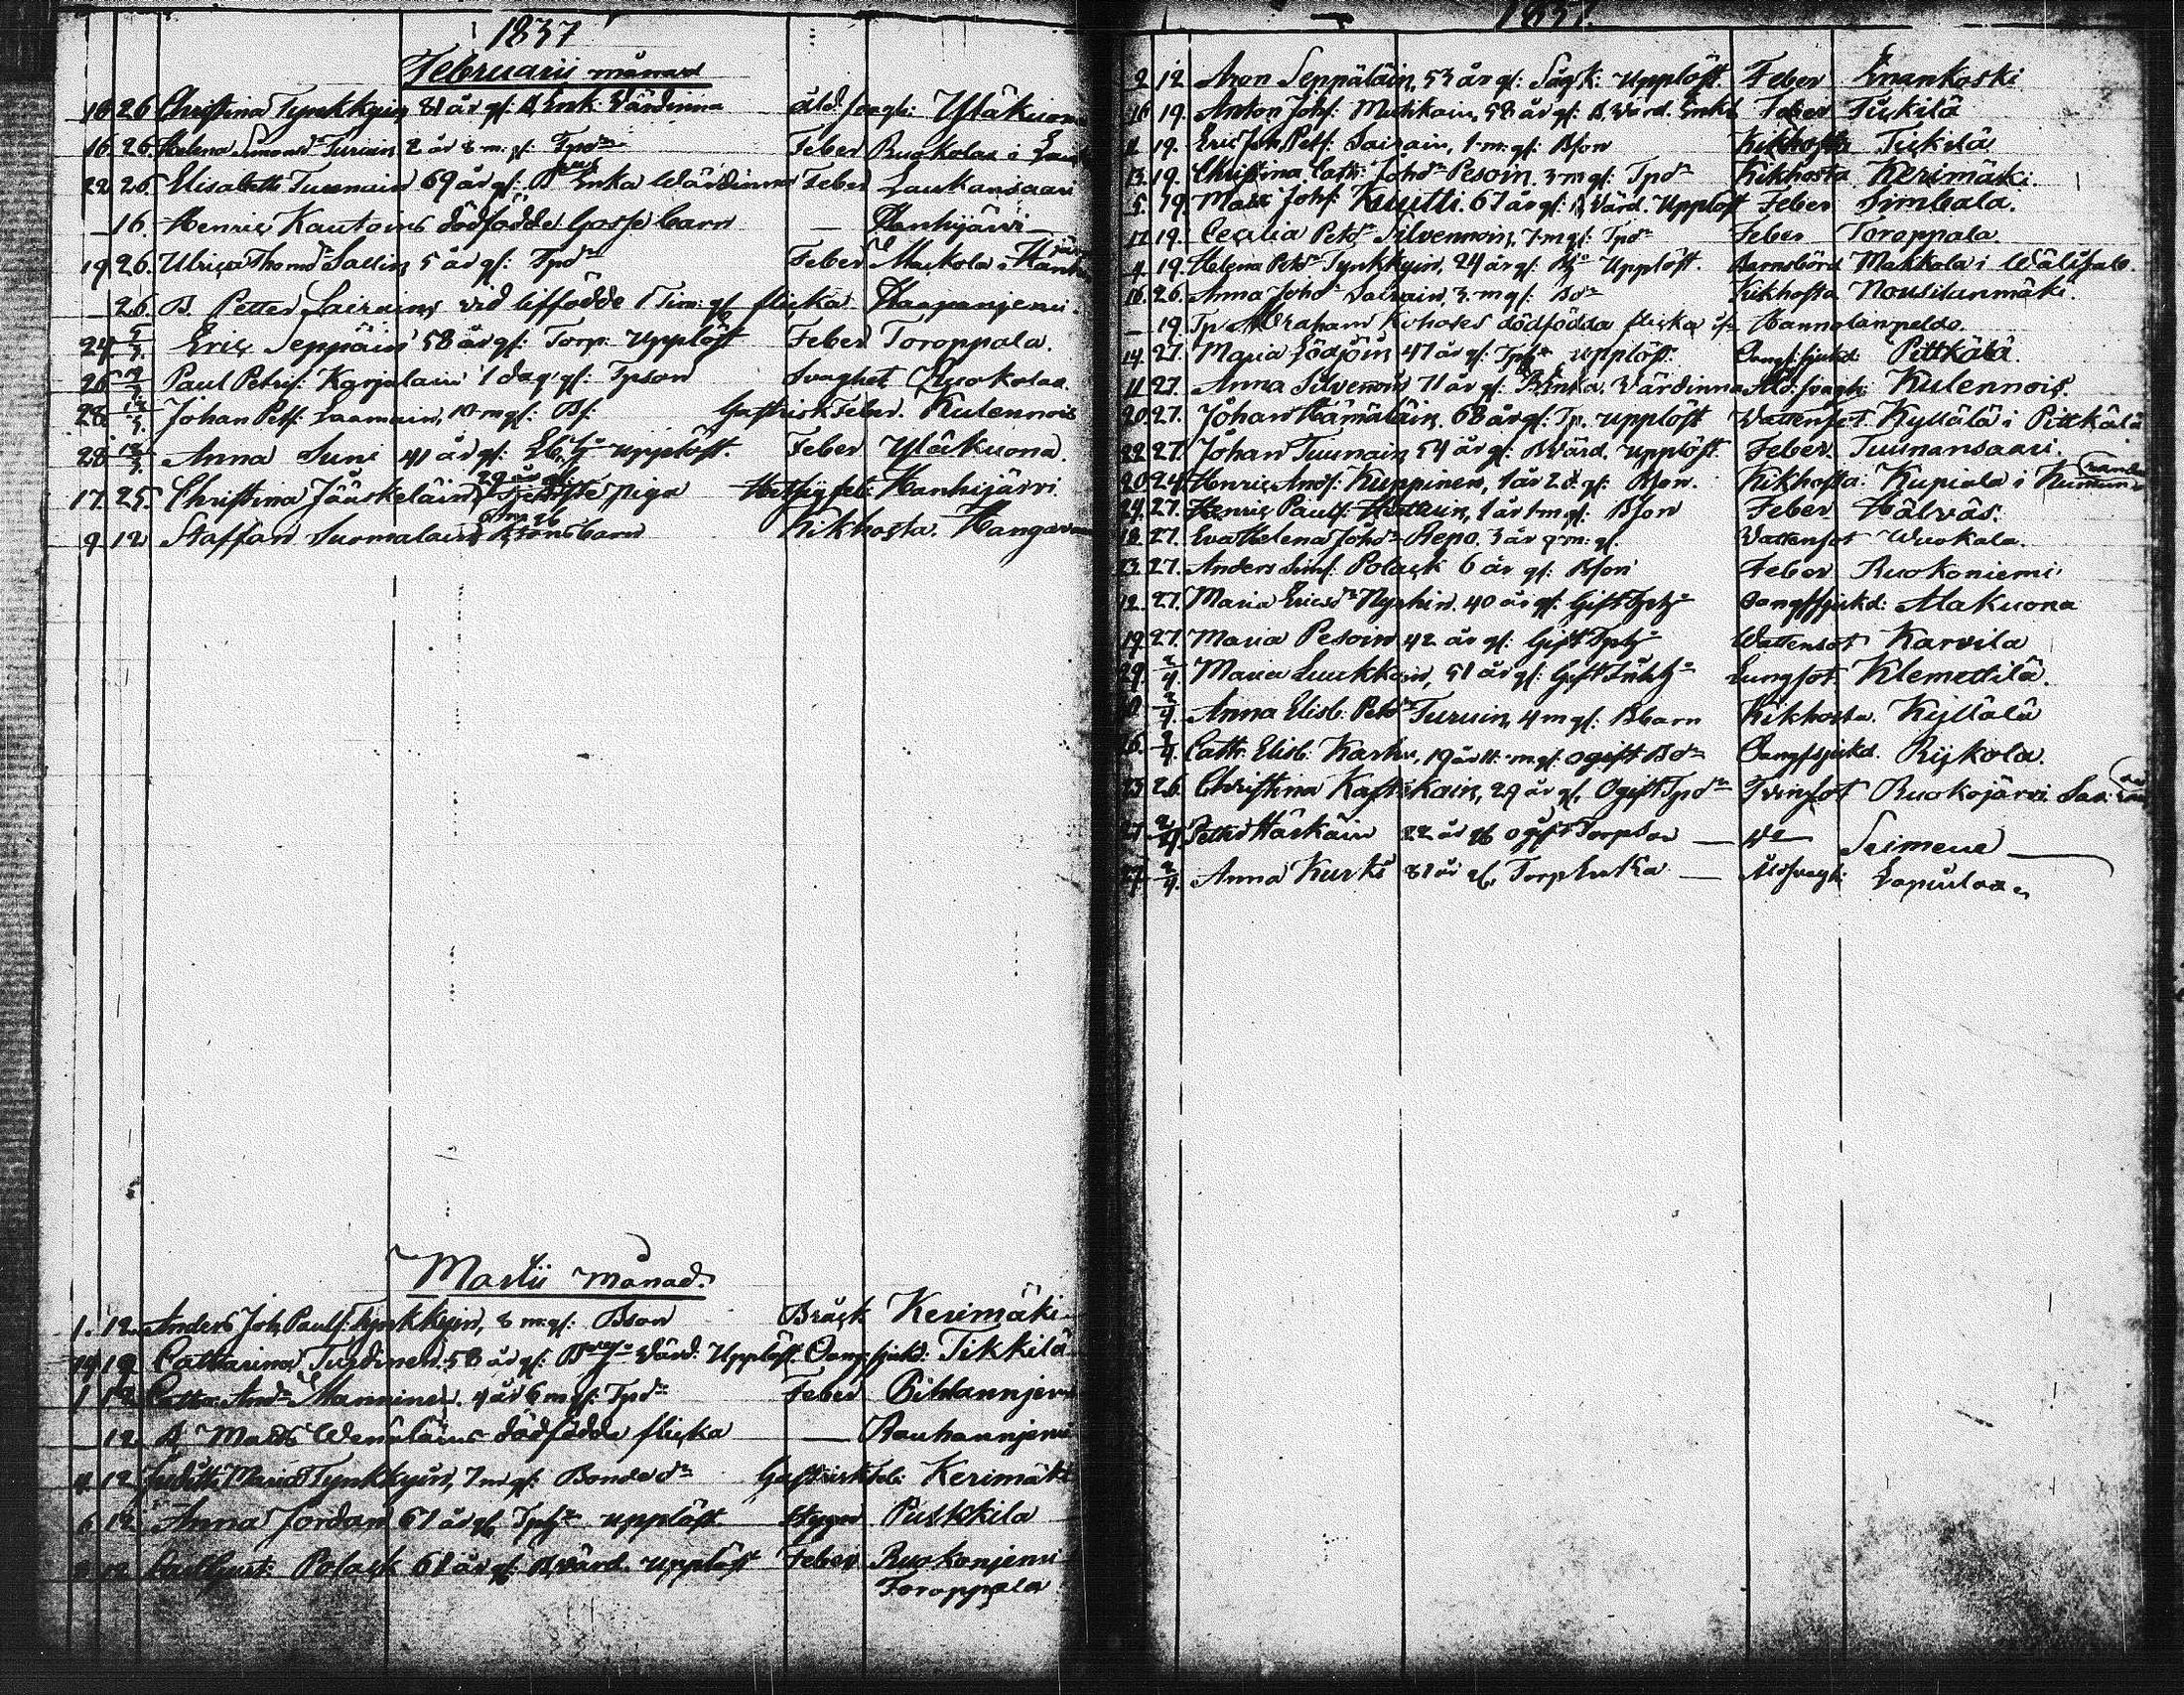 1837
Februarii månad
16 26 Christina Tynkkyin 81 år gl: B Enk: Värdinna Åld. svagh: Yläkuona
16. 26. Helena Simonsdr Turuin 2 år 8 m. gl. Tpdr Feber Ruokolax i
22 26. Elisabeth Tuunain 69 år gl: B Enka Värdinna Feber Laukansaari
— 16. Henric Kautoins dödfödde Gosse barn — Hanhijärvi
19 26. Ulrica Thomsdr Sallin 5 år gl: Tpdr Feber Makkola i
— 26. B. Petter Sairains vid lif födde 1 Tim: gl. flicka Haapanjemi.
24 5/3. Eric Seppäin 58 år gl: Torp. Upplöst Feber Toroppala.
26 12/3 Paul Petrif: Karjalain 1 dag gl: Tpson Svaghet Ruokolax
28 12/3. Johan Petf: Laamain, 10 m gl: Bf: Gastrisk Feber. Kulennois
28 12/3. Anna Suni 41 år gl: upplöst. Feber Yläkuona.
17. 25. Christina Jääskeläin, 29 år gl: piga Hetsig feb: Hanhijärvi
9 12 Staffan Suomalain 6 m. gl. Bonsbarn Kikhosta. Hangas
Martii månad.
1. 12. Anders Joh. Paulf: Tynkkyin, 8 m: gl: Bson Bråck Kerimäki
14 19 Catharina Turdinen. 58 år gl: Värd: Upplöst. Oangf sjukd: Tikkilä
1 12 Catha: Andr Manninen. 4 år 6 m gl: Tpdr Feber Pihlannjemi
— 12. B Matts Wenäläins dödfödda flicka — Rauhannjemi
4. 12. Judith Maria Tynkkyin, 7 m gl: Bondedr Gastrisk Feb: Kerimäki
6 12. Anna Jordan 61 år gl. Tphu upplöst. Styng Puikkila
12 Carl Gust: Polack 61 år gl: B värd. upplöst Feber Ruokonjemi
Toroppala
1837.
9 12 Aron Seppäläin, 53 år gl: Upplöst. Feber Enankoski
16 19. Anton Johf: Mutikain, 58 år gl: B. Värd. Enkl. Feber Tikkilä
19. Eric Joh. Petf: Sairain, 1 m: gl: Bson Kikhosta Tikilä
13. 19. Christina Cath: Johdr Pesoin. 3 m gl: Tpdr Kikhosta Kerimäki.
5. 19. Mats Johf: Kuutti. 67 år gl: B. Värd. Upplöst Feber Simbala.
17. 19. Cecilia Petdr Silvennoin, 7 m gl: Tpdr Feber Toroppala.
4. 19. Helena Petdr Tynkkyin, 24 år gl: Upplöst. Barnsbörd Makkola i Wälisalo.
16. 26. Anna Johdr Sairain, 3 m gl: Bdr Kikhosta Nousilanmäki.
— 19. Tp Abraham Kohoses dödfödda flicka Hannolanpeldo.
14. 27. Maria Södjöin 47 år gl: upplöst. Oangf: sjukd: Pittkälä.
11 27. Anna Silvenois 71 år gl: B Enka. Värdinna Åld: svagh: Kulennois.
20. 27. Johan Hämäläin, 68 år gl: Tp. upplöst Vattensot. Kyllälä i Pittkälä
22. 27. Johan Tuunain, 54 år gl: B värd. upplöst. Feber. Tuunansaari.
20. 24. Henric Andf: Kuppinen, 1 år 2 d. gl: Bson. Kikhosta: Kupiala i
24. 27. Henric Paulf: 1 år 1 m gl: Bson Feber Hälväs.
18. 27. Eva Helena Johdr Repo. 3 år 9 m: gl. Vattensot Wuokala.
23. 27. Anders Simf: Polack 6 år gl: Bson Feber Ruokoniemi
12. 27. Maria Ericsdr Nyrhin. 40 år gl: Gift Tphu Oangf sjukd: Alakuona
19. 27. Maria Pesoin 42 år gl: Gift Tphu Wattensot Karvila
29. 2/4. Maria Luukkain, 51 år gl: Gift Lungsot. Klemettilä.
2/4. Anna Elisb: Petdr Turuin, 4 m gl: Bbarn Kikhosta. Kyllälä
26. 2/4. Cath: Elisb: Karhu, 19 år 11. m gl: ogift Bdr Oangf sjukd. Rijkola.
23 26. Christina Kastikain, 29 år gl. Ogift Tpdr Tvinsot Ruokojärvi
27 2/4. Petter Häskäin 22 år gl. ogift Torpson — dо — Seimene
27 2/4. Anna Kurki 81 år gl. Torp Enka — Åld svagh: Lapinlax